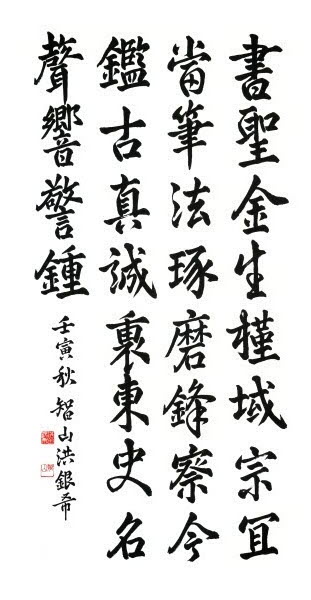 書聖金生槿域宗冝
當筆法琢磨鋒察今
鑑古真誠裏東史名
聲響警鍾
壬寅秋智山洪銀希